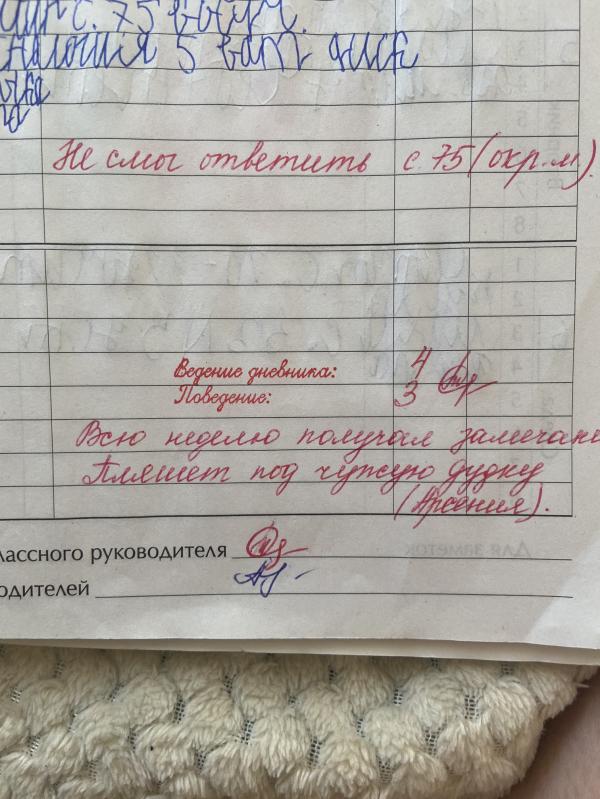 с. 75
5
Не смог ответить с. 75 (окр. м).
Ведение дневника: 4
Поведение: 3
Всю неделю получал замечан
Пляшет под чужую дудку
(Арсения).
лассного руководителя
одителей
Для заметок